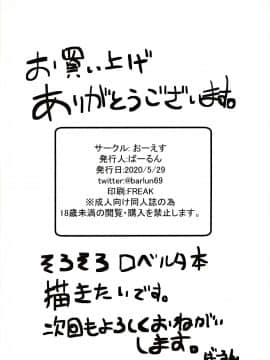 お買い上げ
ありがとうございます。
サークル: おーえす
発行人:ばーるん
発行日:2020/5/29
twitter:@barlun69
印刷:FREAK
※成人向け同人誌の為
18歳未満の閲覧・購入を禁止します。
そろそろ ロベルタ本
描きたいです。
次回もよろしくおねがい
します。
ばーるん